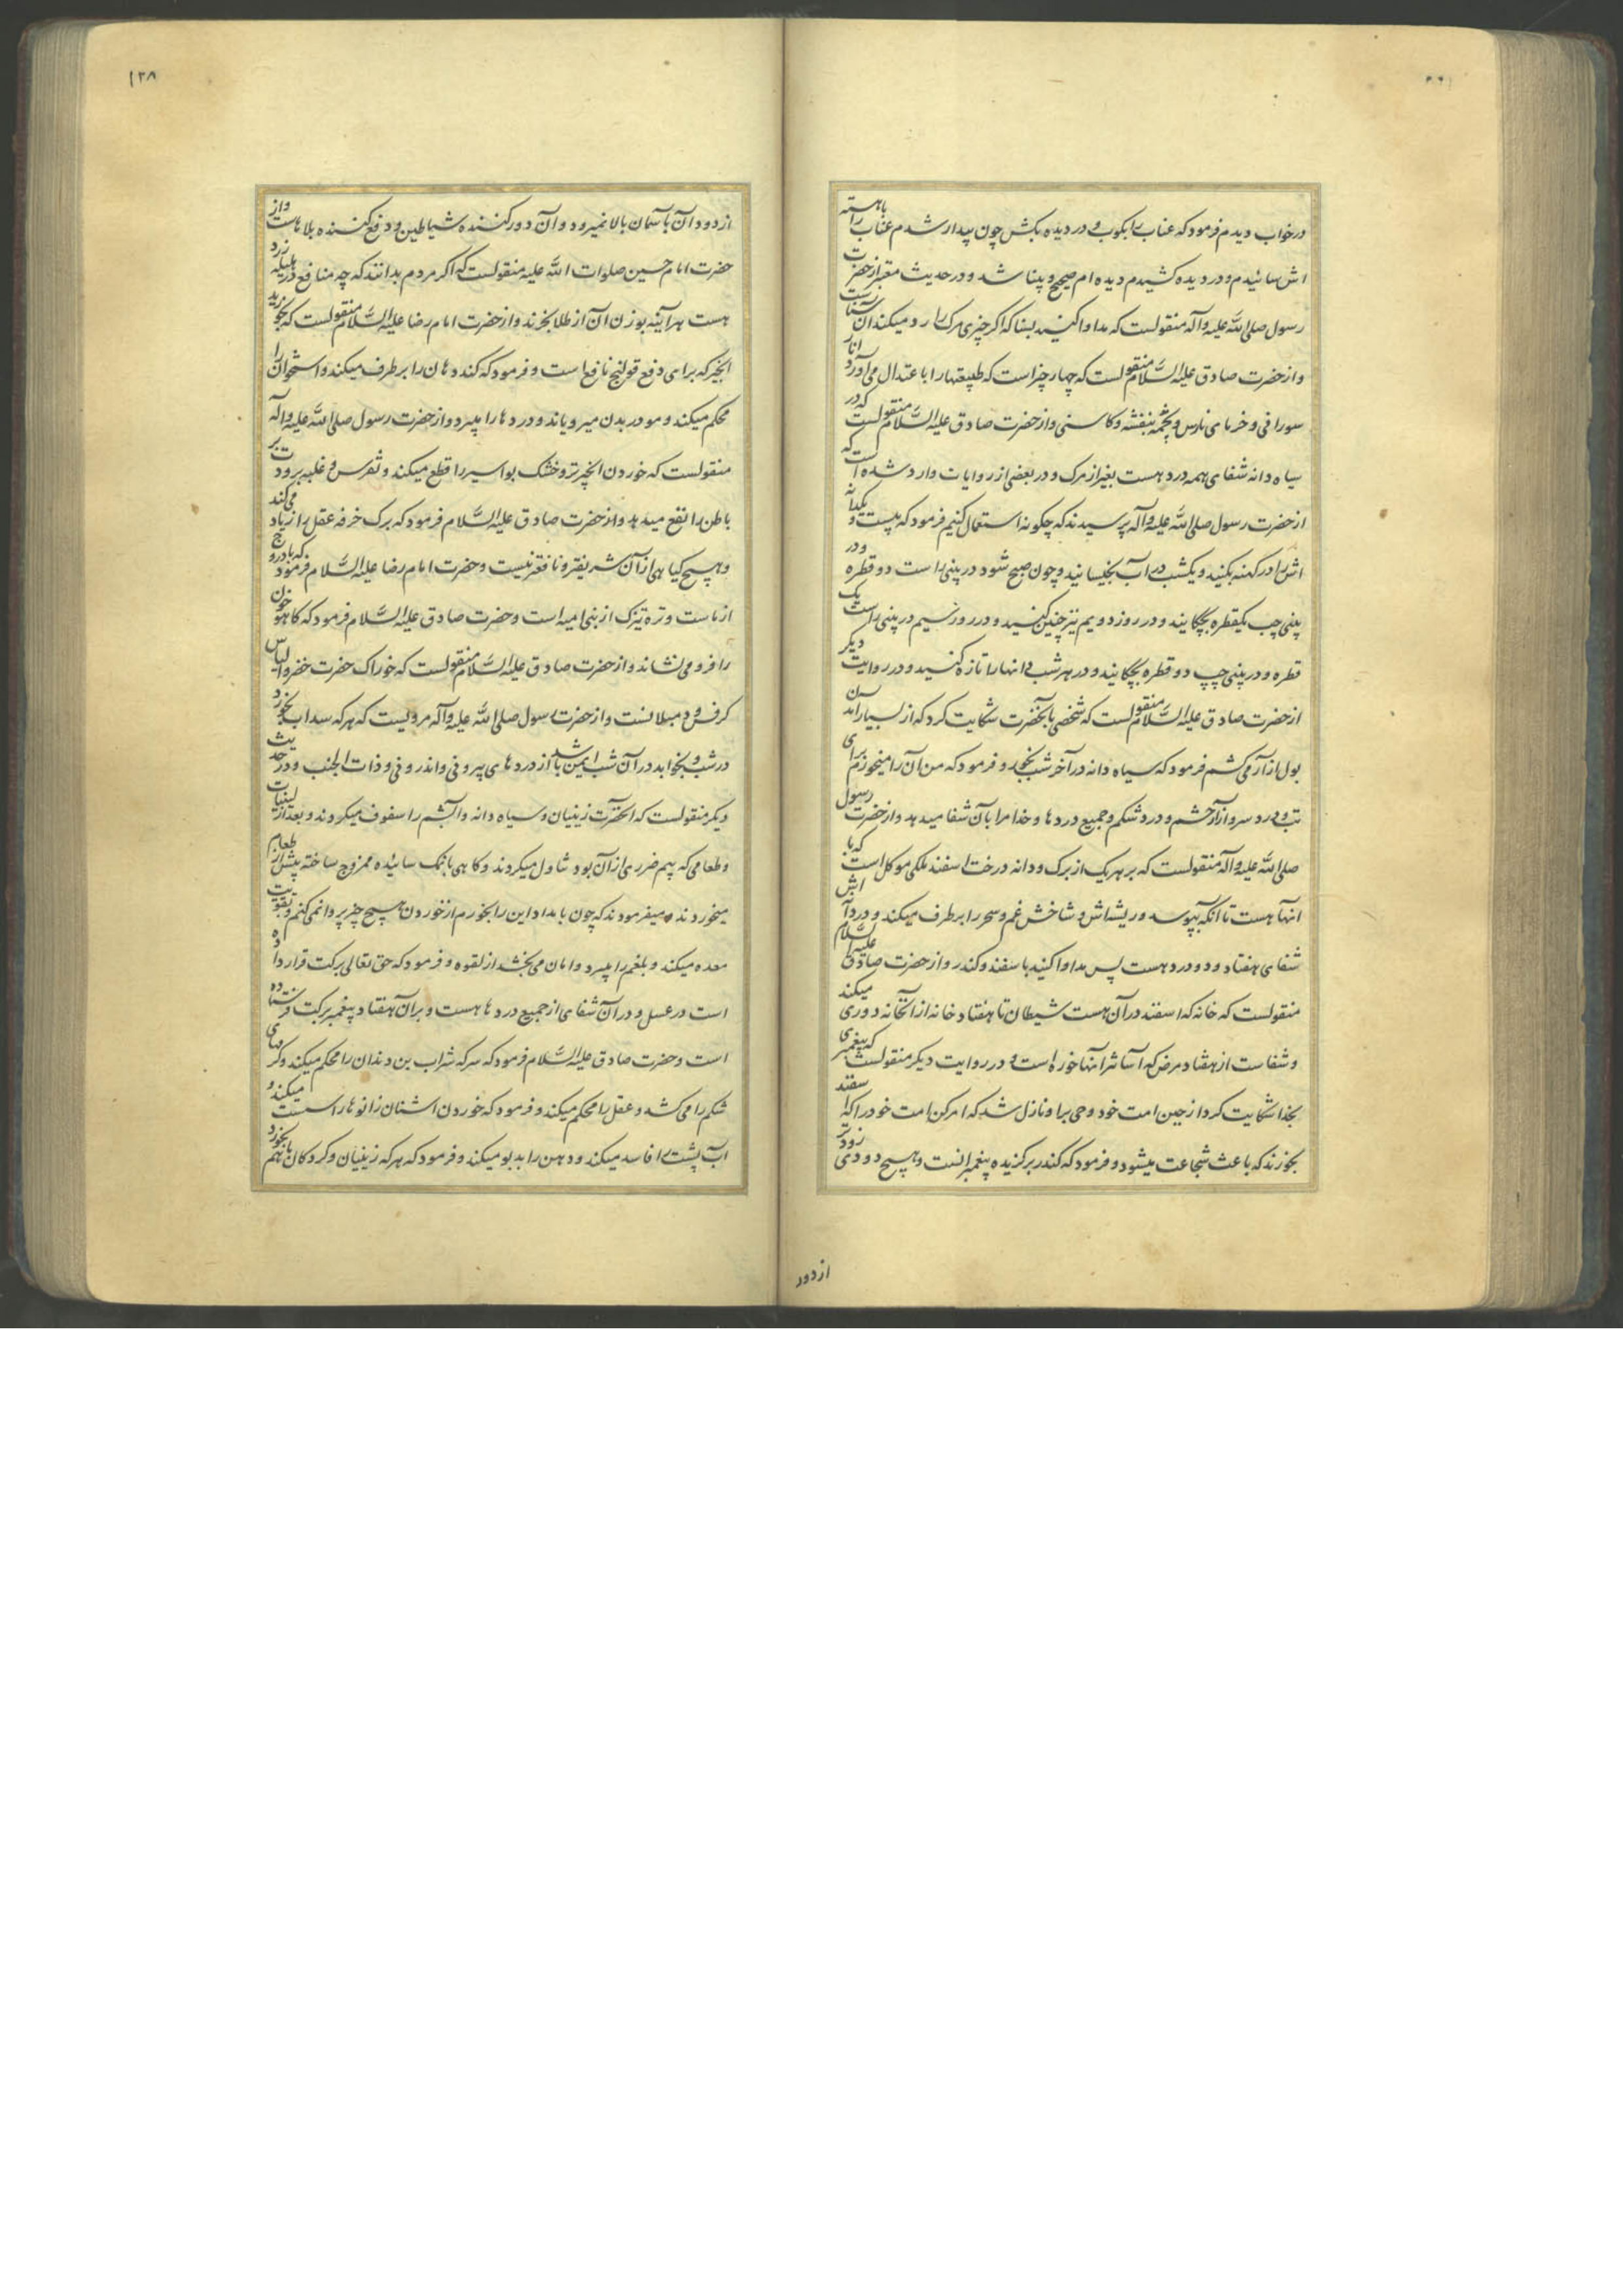 درخواب دیدم فرمود که عناب را بکوب و در دیده بکش چون بیدار شدم عناب را باهسته
اش سائیدم و در دیده کشیدم دیده ام صحیح و بینا شد و در حدیث معتبر از حضرت
رسول صلی الله علیه وآله منقولست که مداوا کنید بسنا که اگر چیزی مرک را رد میکند آن سناست
و از حضرت صادق علیه السلام منقولست که چهار چیز است که طبیعتها را باعتدال می آورد انار
سورانی و خرمای نارس پخته و بنفشه و کاسنی و از حضرت صادق علیه السلام منقولست که در
سیاه دانه شفای همه درد هست بغیر از مرک و در بعضی از روایات وارد شده است که
از حضرت رسول صلی الله علیه وآله پرسیدند که چگونه استعمال کنیم فرمود که بیست و یکدانه
اش را در کهنه بکنید و یکشب در آب بخیسانید و چون صبح شود در بینی راست دو قطره و در
بینی چپ یکقطره بچکانید و در روز دویم نیز چنین کنید و در روز سیم در بینی راست یک
قطره و در بینی چپ دو قطره بچکانید و در هر شب دانها را تازه کنید و در روایت دیگر
از حضرت صادق علیه السلام منقولست که شخصی بآنحضرت شکایت کرد که از بسیار آمدن
بول ازار می کشم فرمود که سیاه دانه در آخر شب بخور و فرمود که من آن را میخورم برای
تب و درد سر و ازار چشم و درد شکم و جمیع دردها و خدا مرا بآن شفا میدهد و از حضرت رسول
صلی الله علیه وآله منقولست که بر هر یک از برک و دانه درخت اسفند ملکی موکل است که با
انها هست تا انکه بپوسد و ریشه اش و شاخش غم و سحر را بر طرف میکند و در دانه اش
شفای هفتاد و دو درد هست پس مداوا کنید باسفند و کندر و از حضرت صادق علیه السلام
منقولست که خانه که اسفند در آن هست شیطان تا هفتاد خانه از آنخانه دوری میکند
و شفاست از هفتاد مرض که آسانتر آنها خوره است و در روایت دیگر منقولست که پیغمبری
بخدا شکایت کرد از جبن امت خود وحی باو نازل شد که امر کن امت خود را که اسفند
بخورند که باعث شجاعت میشود و فرمود که کندر برگزیده پیغمبرانست و هیچ دودی زودتر
از دود
۱۳۸
از دود آن بآسمان بالا نمیرود و آن دور کننده شیاطین و دفع کننده بلاهاست و از
حضرت امام حسین صلوات الله علیه منقولست که اگر مردم بدانند که چه منافع در هلیله زرد
هست هرآینه بوزن آن از طلا بخرند و از حضرت امام رضا علیه السلام منقولست که بخورید
انجیر که برای دفع قولنج نافع است و فرمود که کند دهان را بر طرف میکند و استخوان را
محکم میکند و مو در بدن میرویاند و دردها را میبرد و از حضرت رسول صلی الله علیه وآله
منقولست که خوردن انجیر تر و خشک بواسیر را قطع میکند و نقرس و غلبه برودت بر
باطن را نفع میدهد و از حضرت صادق علیه السلام فرمود که برک خرفه عقل را زیاد می کند
و هیچ کیاهی از آن شریفتر و نافعتر نیست و حضرت امام رضا علیه السلام فرمود که بادروج
از ماست و تره تیزک از بنی امیه است و حضرت صادق علیه السلام فرمود که کاهو خون
را فرو می نشاند و از حضرت صادق علیه السلام منقولست که خوراک حضرت خضر و الیاس
کرفس و دمبلانست و از حضرت رسول صلی الله علیه وآله مرویست که هر که سداب بخورد
در شب و بخوابد در آن شب ایمن باشد از دردهای بیرونی و اندرونی و ذات الجنب و در حدیث
دیگر منقولست که آنحضرت زنینان و سیاه دانه و آبشم را سفوف میکردند و بعد از لبنیات
و طعامی که بیم ضرری از آن بود تناول میکردند و کاهی بانمک سائیده ممزوج ساخته پیش از طعام
میخوردند و میفرمودند که چون بامداد این را بخورم از خوردن هیچ چیز پروا نمی کنم و تقویت
معده میکند و بلغم را میبرد و امان می بخشد از لقوه و فرمود که حق تعالی برکت قرار داده
است در عسل و در آن شفای از جمیع دردها هست و بر آن هفتاد پیغمبر برکت فرستاده
است و حضرت صادق علیه السلام فرمود که سرکه شراب بن دندان را محکم میکند و کرمهای
شکم را می کشد و عقل را محکم میکند و فرمود که خوردن اشنان زانوها را سست میکند و
آب پشت را فاسد میکند و دهن را بدبو میکند و فرمود که هر که زنینان و کردکان باهم بخورد